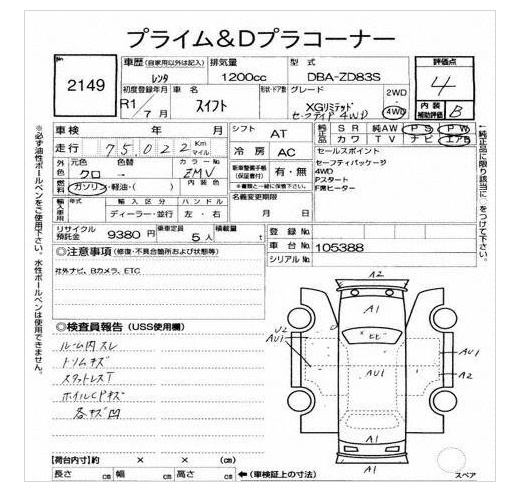 プライム&Dプラコーナー
No
2149
車歴 (自家用以外は記入) 排気量 型式
レンタ 1200cc DBA-ZD83S
初度登録年月 車名 形状・ドア数 グレード 2WD
R1/7月 スイフト XGリミテッド 4WD
セーフティP 4WD
評価点
4
内装補助評価 B
車検 年 月
走行 75,022 Km マイル
シフト AT
冷房 AC
純正品 SR 純AW PS PW
カワ TV ナビ エアB
セールスポイント
セーフティパッケージ
4WD
Pスタート
F席ヒーター
外色 元色 色替 カラーNo
クロ — ZMV
燃料 ガソリン・軽油・( ) 内装色
新車整備手帳(保証書付) 有・無
※書類と一緒に保管下さい。
輸入車用 年式 輸入区分 ハンドル
ディーラー・並行 左・右
名義変更期限
月 日
リサイクル預託金 9380円 乗車定員 5人 積載量 t
登録No
車台No 105388
シリアルNo
◎注意事項 (修復・不具合箇所および状態等)
社外ナビ、Bカメラ、ETC
◎検査員報告 (USS使用欄)
ルーム内スレ
トリムキズ
スタットレスT
ホイルCPキズ
各キズ凹
A2
A1
U2
AU1
ヒビ
AU1
AU1
A2
A1
A1
スペア
【荷台内寸】約 × × (cm)
長さ cm 幅 cm 高さ cm ←(車検証上の寸法)
※必ず油性ボールペンをご使用下さい。水性ボールペンは使用できません。
←純正品に限り該当に○をつけて下さい。